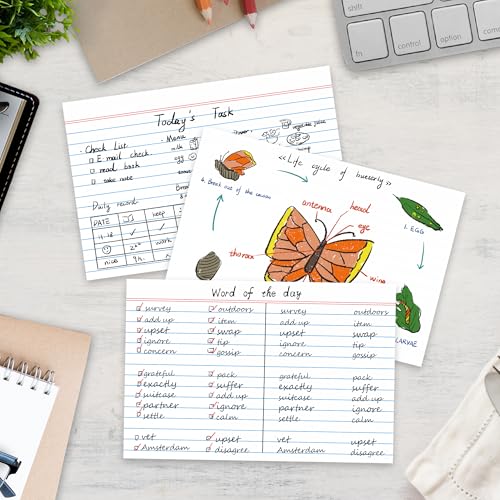 shift
fn
control
option
Today's Task
Check List
E mail check
read book
take note
Daily record
DATE
keep
work
nice
9h.
Menu
milk
egg
Dinner
«Life cycle of butterfly»
antenna
head
eye
thorax
wing
1. EGG
LARVAE
Word of the day
survey outdoors survey outdoors
add up item add up item
upset swap upset swap
ignore tip ignore tip
concern gossip concern gossip
grateful pack grateful pack
exactly suffer exactly suffer
suitcase add up suitcase add up
partner ignore partner ignore
settle calm settle calm
vet upset vet upset
Amsterdam disagree Amsterdam disagree